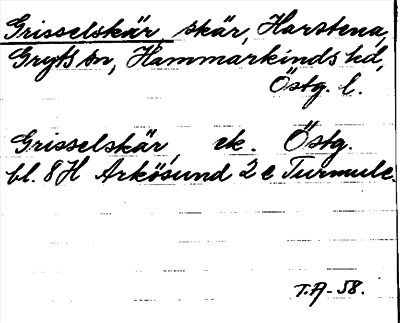 Grisselskär, skär, Harstena,
Gryts sn, Hammarkinds hd,
Östg. l.
Grisselskär, ek. Östg.
bl. 8H Arkösund 2 e Turmule.
T.A-58.